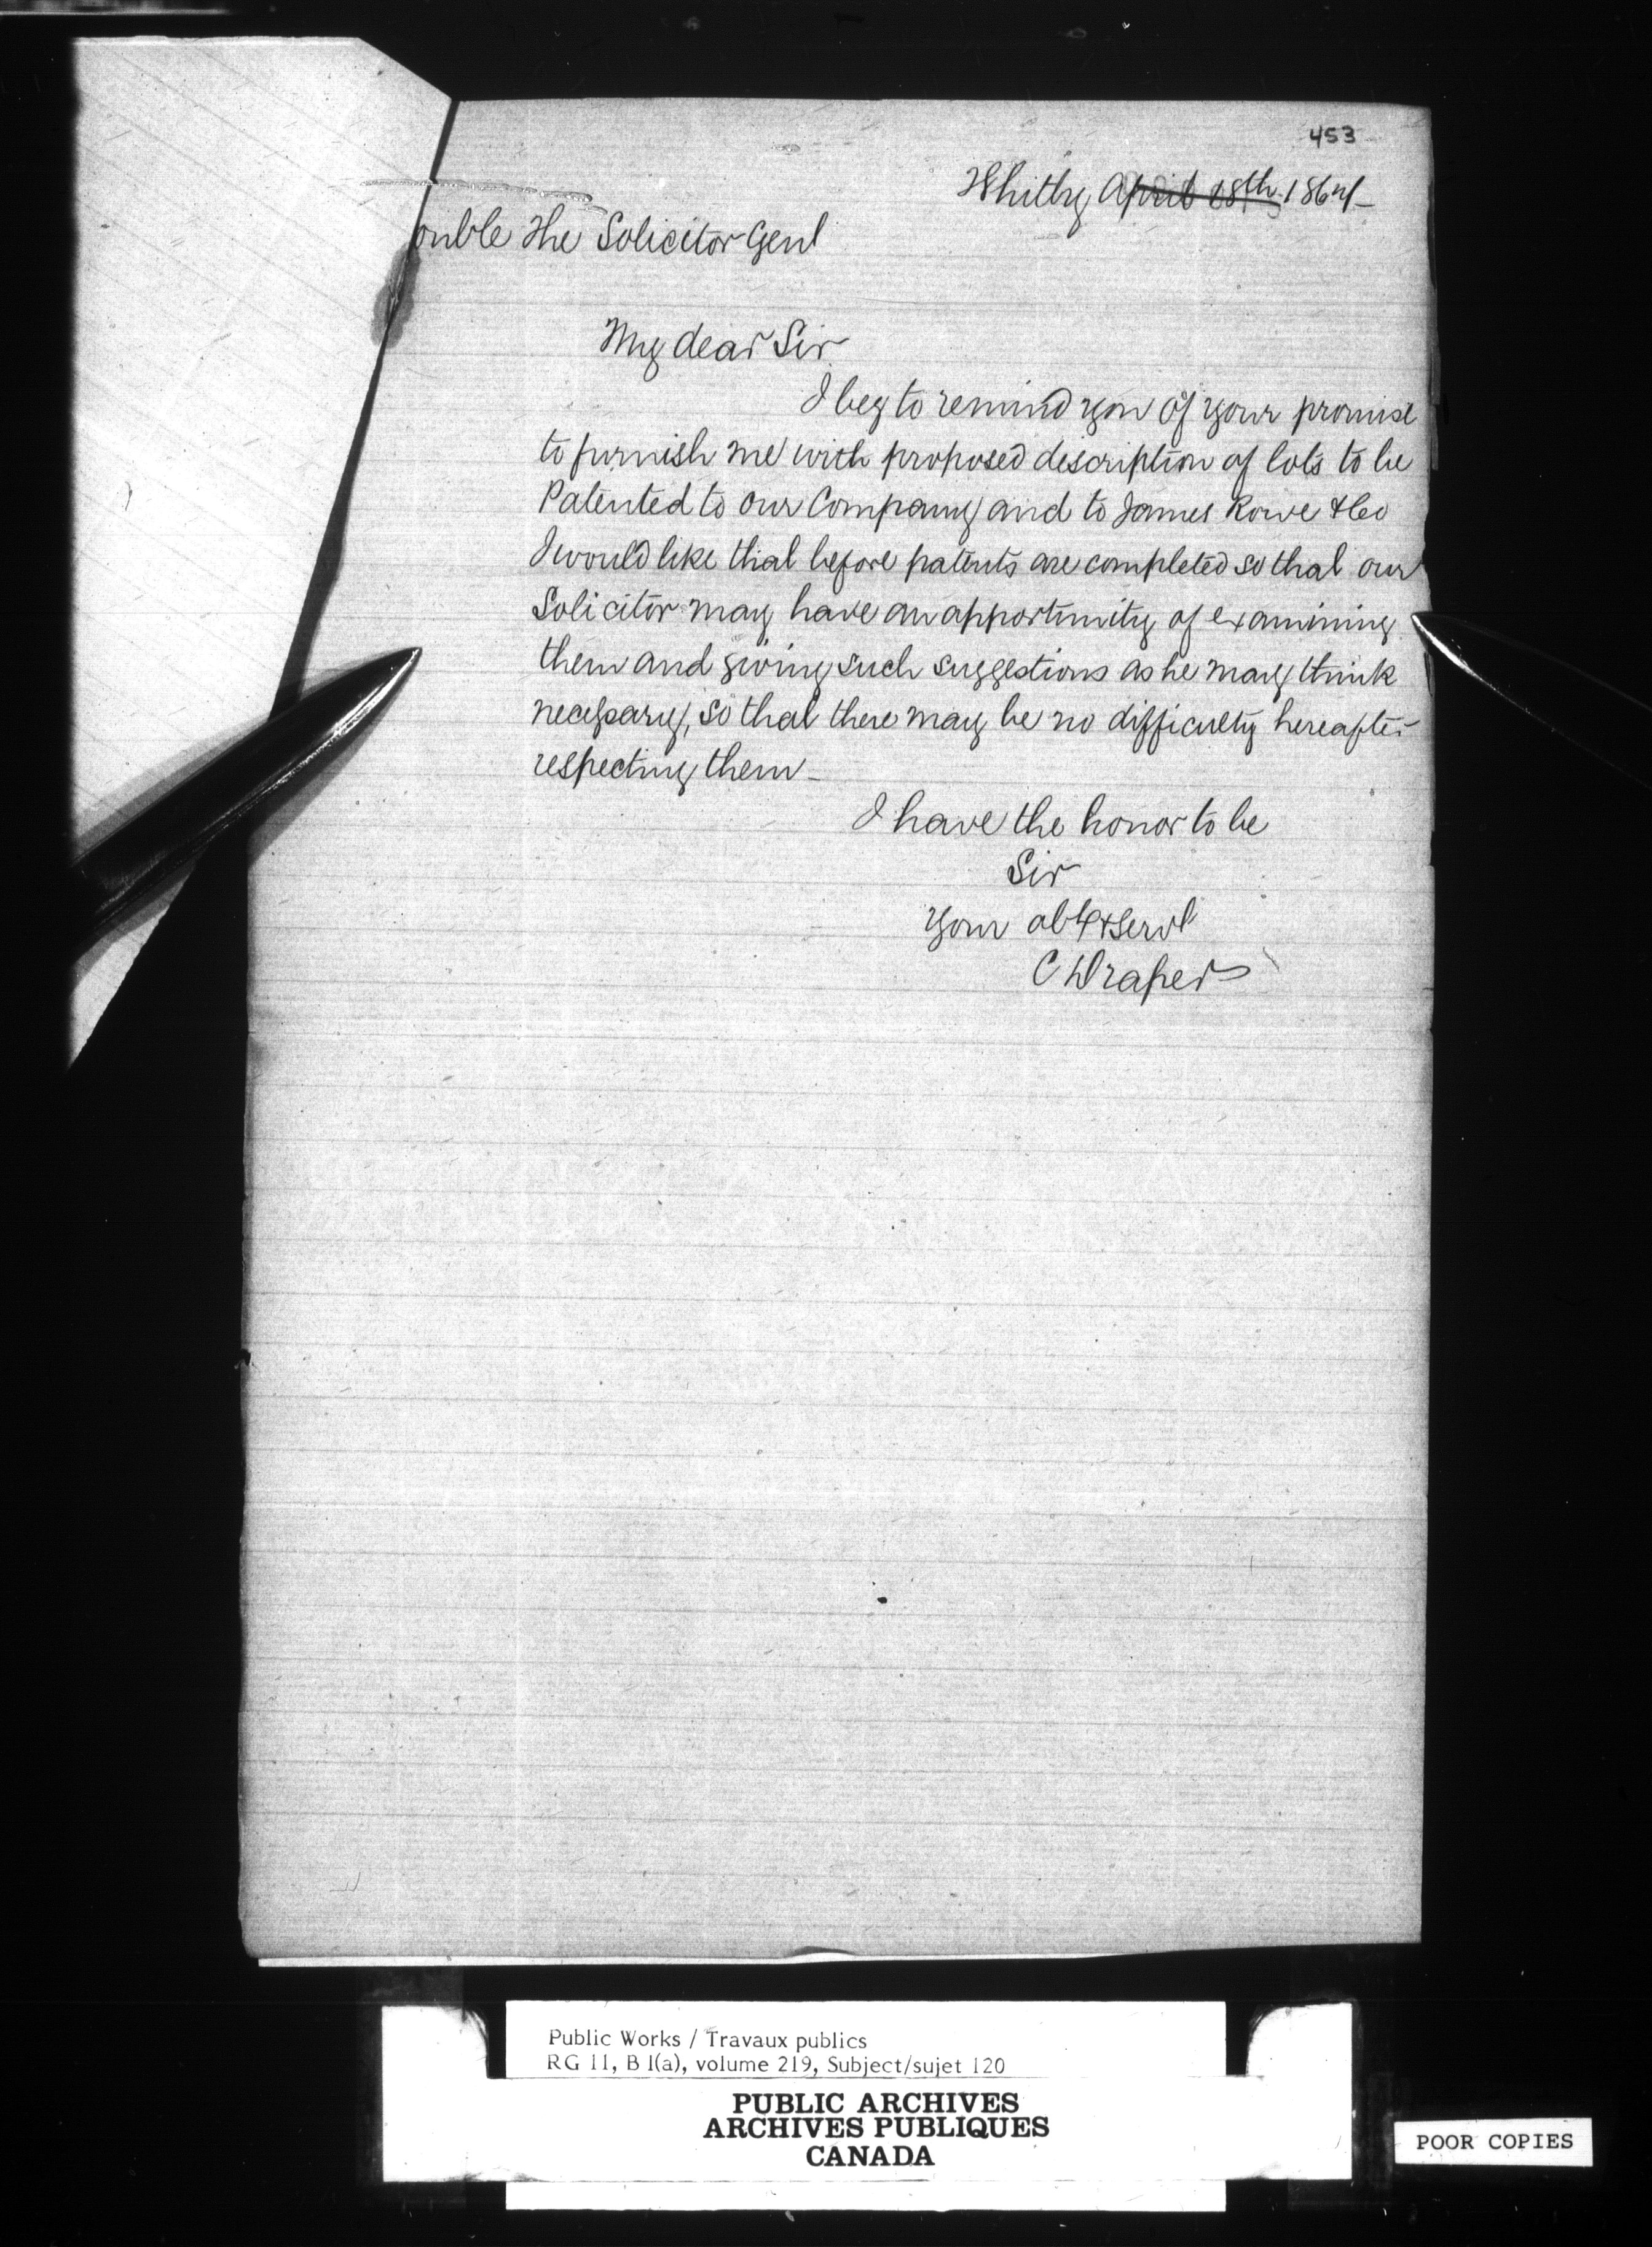 453
Whitby April 18th 1864
onble The Solicitor Genl
My dear Sir
I beg to remind you of your promise
to furnish me with proposed description of lots to be
Patented to our Company and to James Rowe & Co
I would like that before patents are completed so that our
Solicitor may have an apportunity of examining
them and giving such suggestions as he may think
necessary, so that there may be no difficulty hereafter
respecting them
I have the honor to be
Sir
Your obt Servt
C Draper
Public Works / Travaux publics
RG 11, B 1(a), volume 219, Subject/sujet 120
PUBLIC ARCHIVES
ARCHIVES PUBLIQUES
CANADA
POOR COPIES